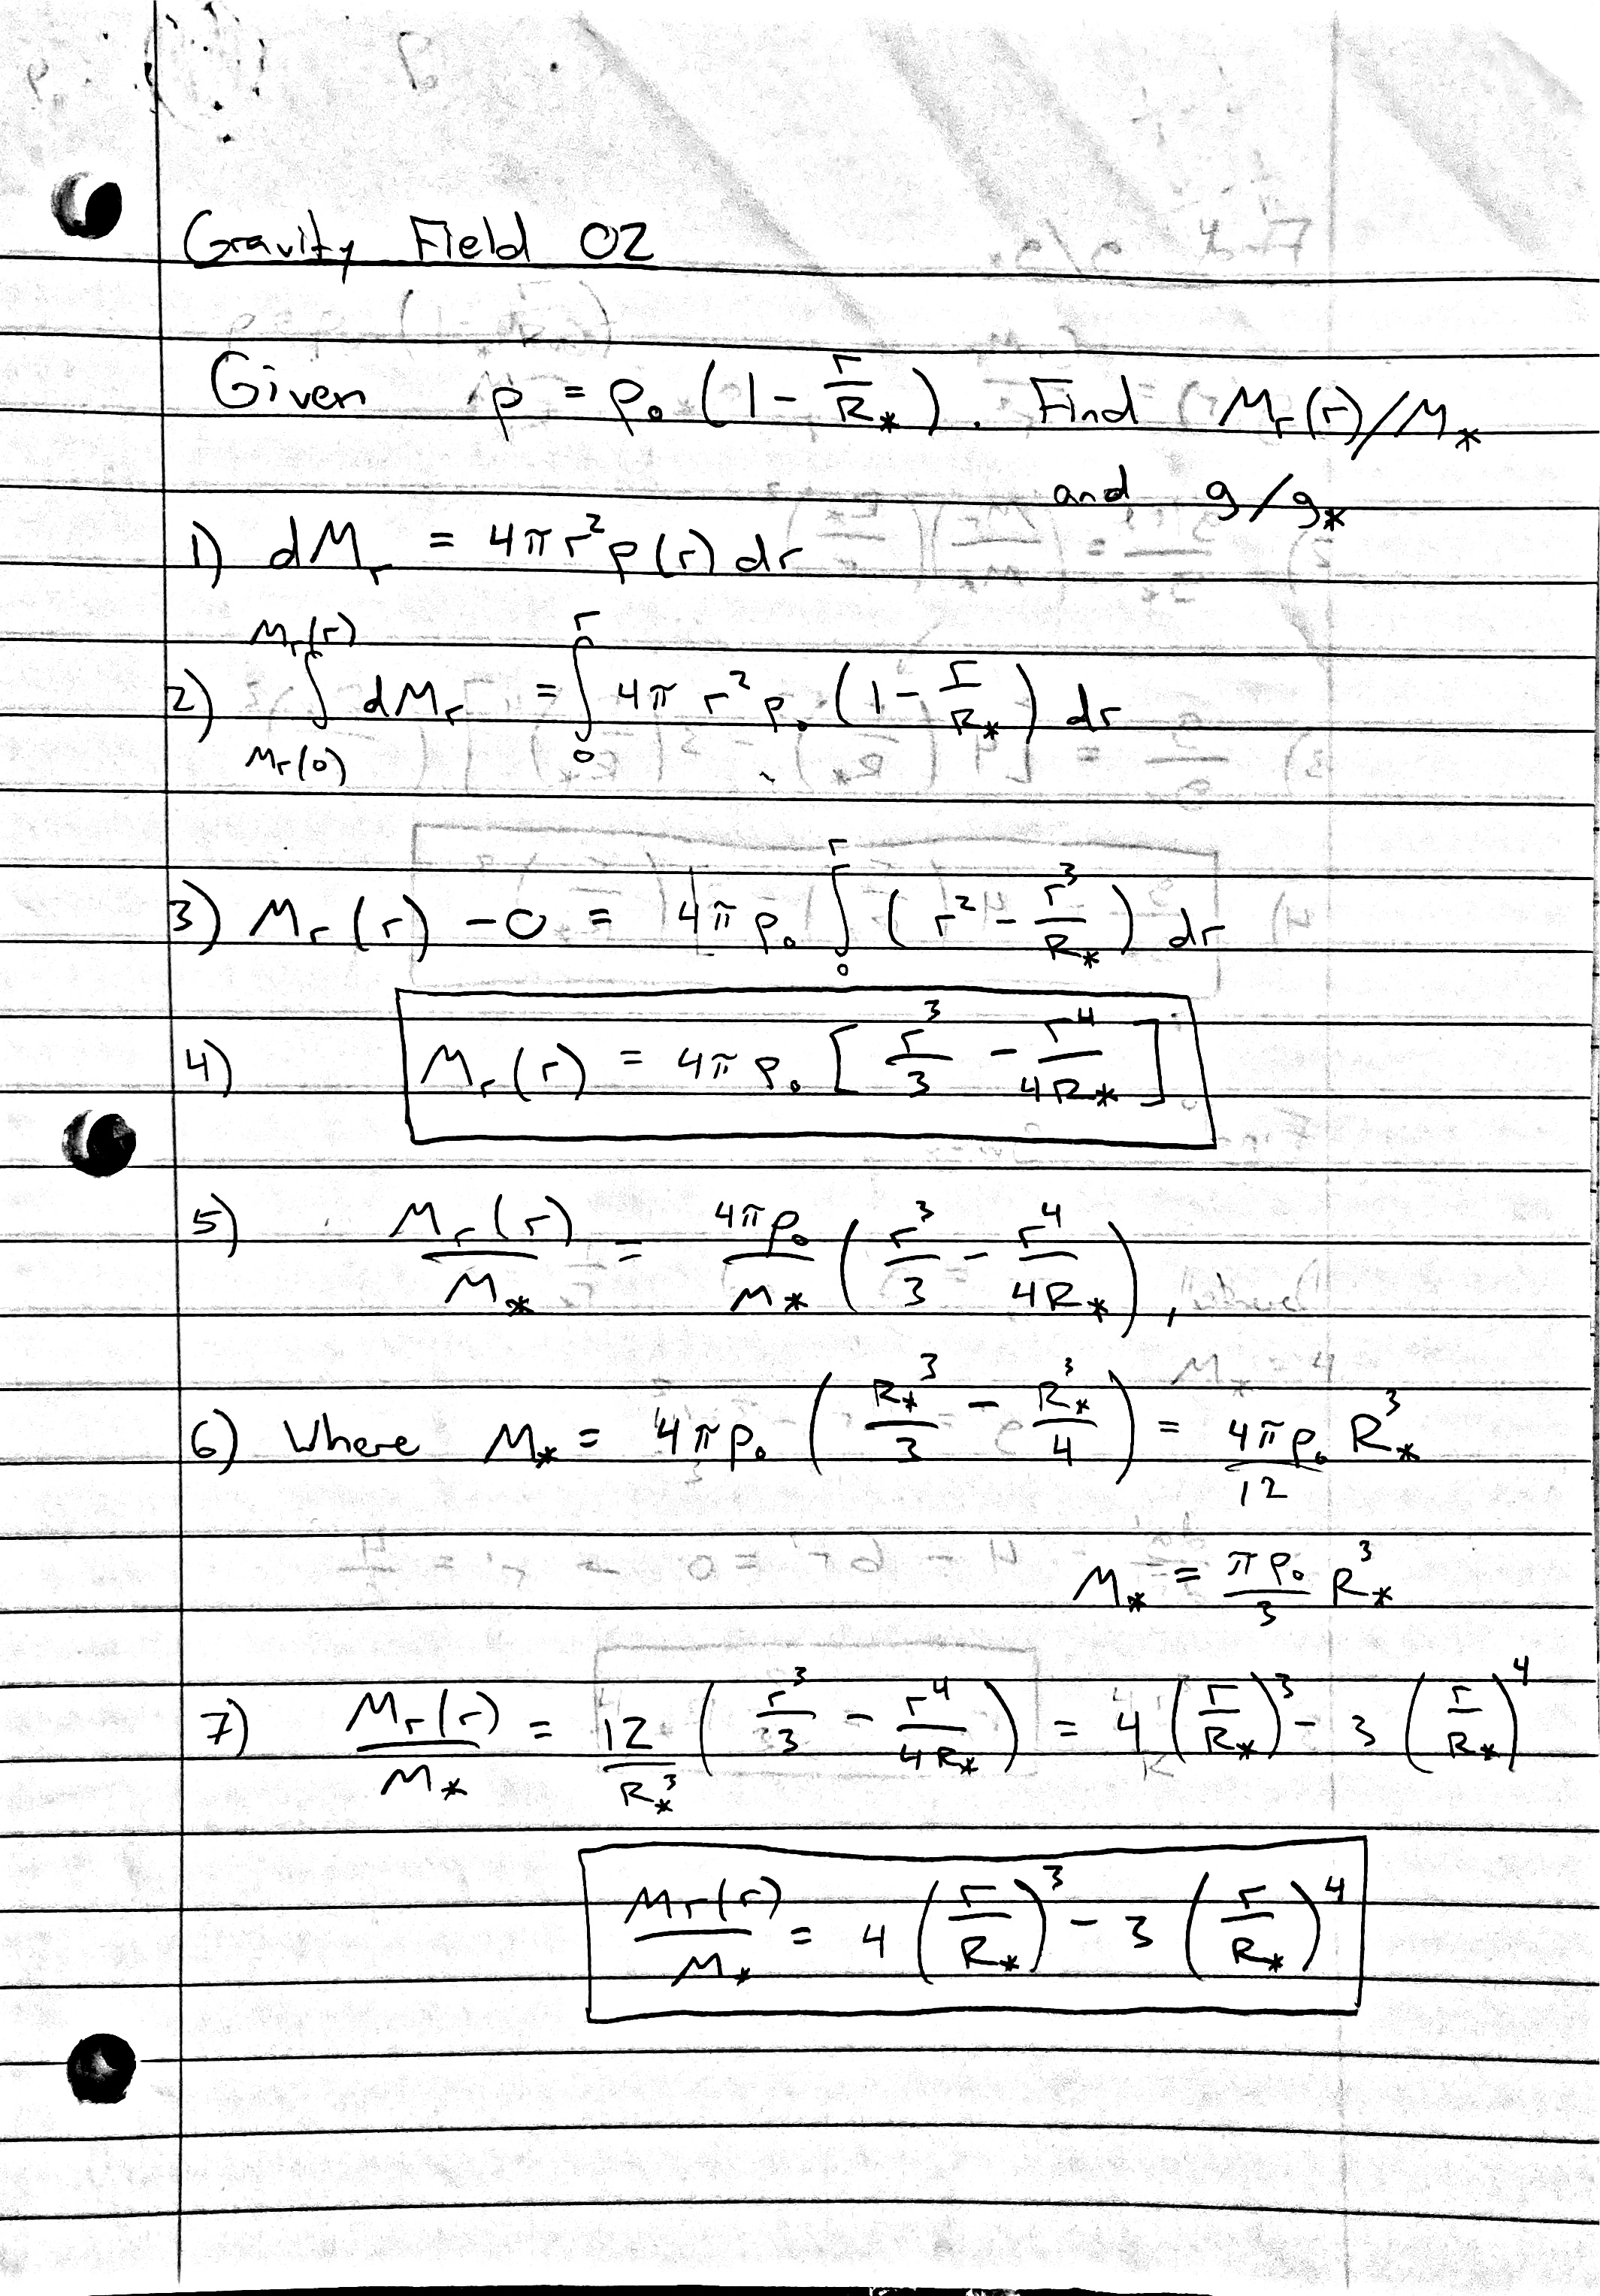 Gravity Field 02
Given ρ = ρ₀ (1 - r/R*). Find Mr(r)/M*
and g/g*
1) dMr = 4πr²ρ(r) dr
2) ∫_{Mr(0)}^{Mr(r)} dMr = ∫_0^r 4π r² ρ₀ (1 - r/R*) dr
3) Mr(r) - 0 = 4π ρ₀ ∫_0^r (r² - r³/R*) dr
4) Mr(r) = 4π ρ₀ [r³/3 - r⁴/4R*]
5) Mr(r)/M* = 4πρ₀/M* (r³/3 - r⁴/4R*),
6) Where M* = 4πρ₀ (R*³/3 - R*³/4) = 4πρ₀/12 R*³
M* = πρ₀/3 R*³
7) Mr(r)/M* = 12/R*³ (r³/3 - r⁴/4R*) = 4 (r/R*)³ - 3 (r/R*)⁴
Mr(r)/M* = 4 (r/R*)³ - 3 (r/R*)⁴